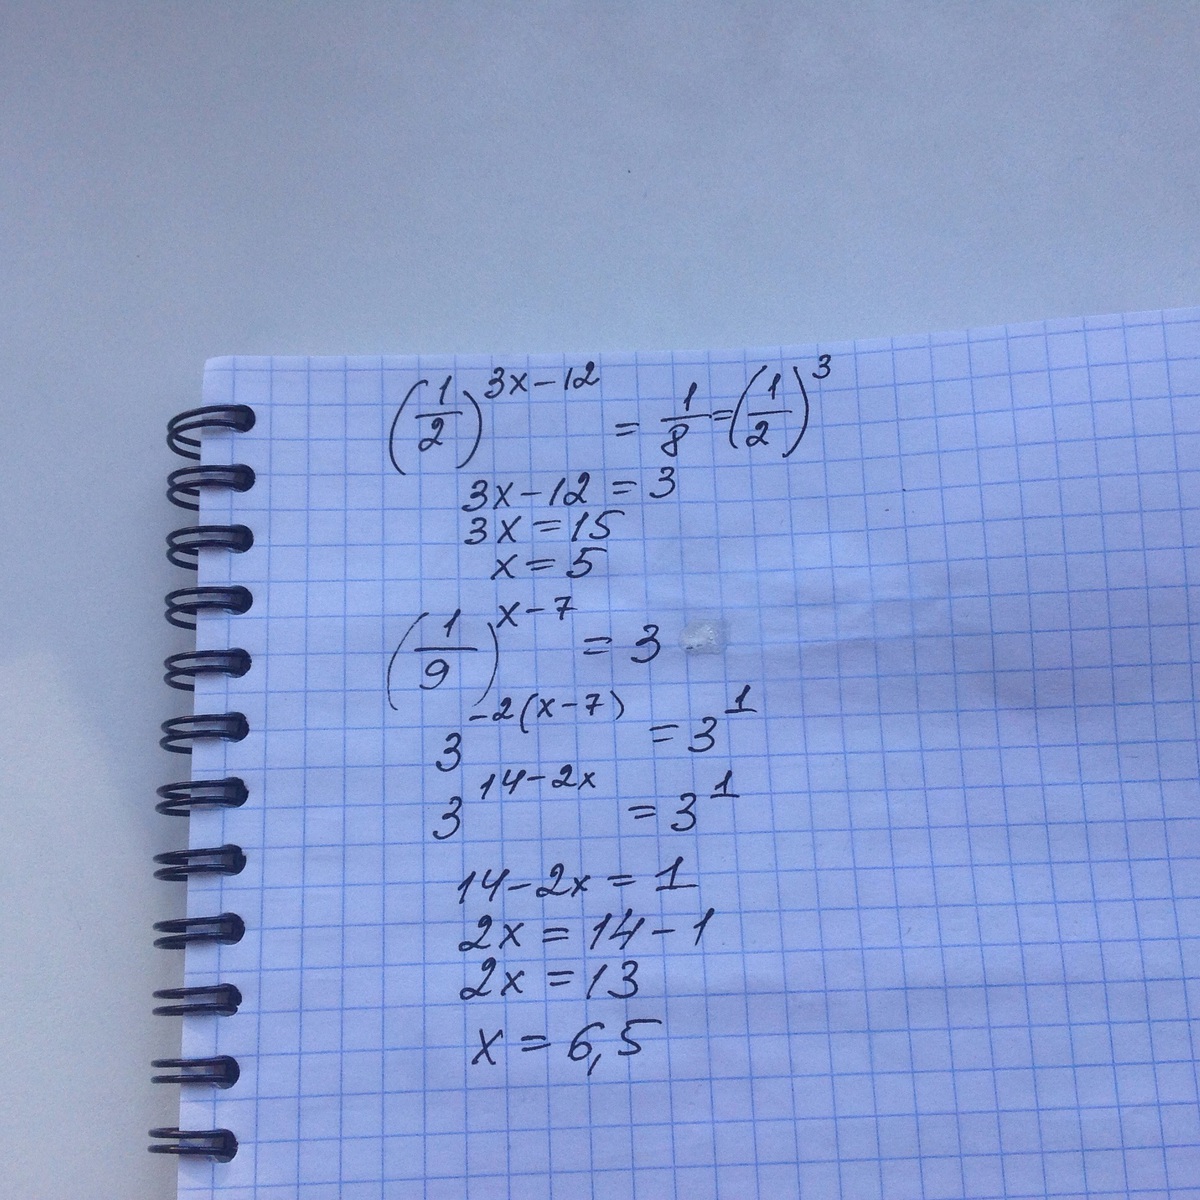 (1/2)^(3x-12) = 1/8 = (1/2)^3
3x-12 = 3
3x = 15
x = 5
(1/9)^(x-7) = 3
3^(-2(x-7)) = 3^1
3^(14-2x) = 3^1
14-2x = 1
2x = 14-1
2x = 13
x = 6,5